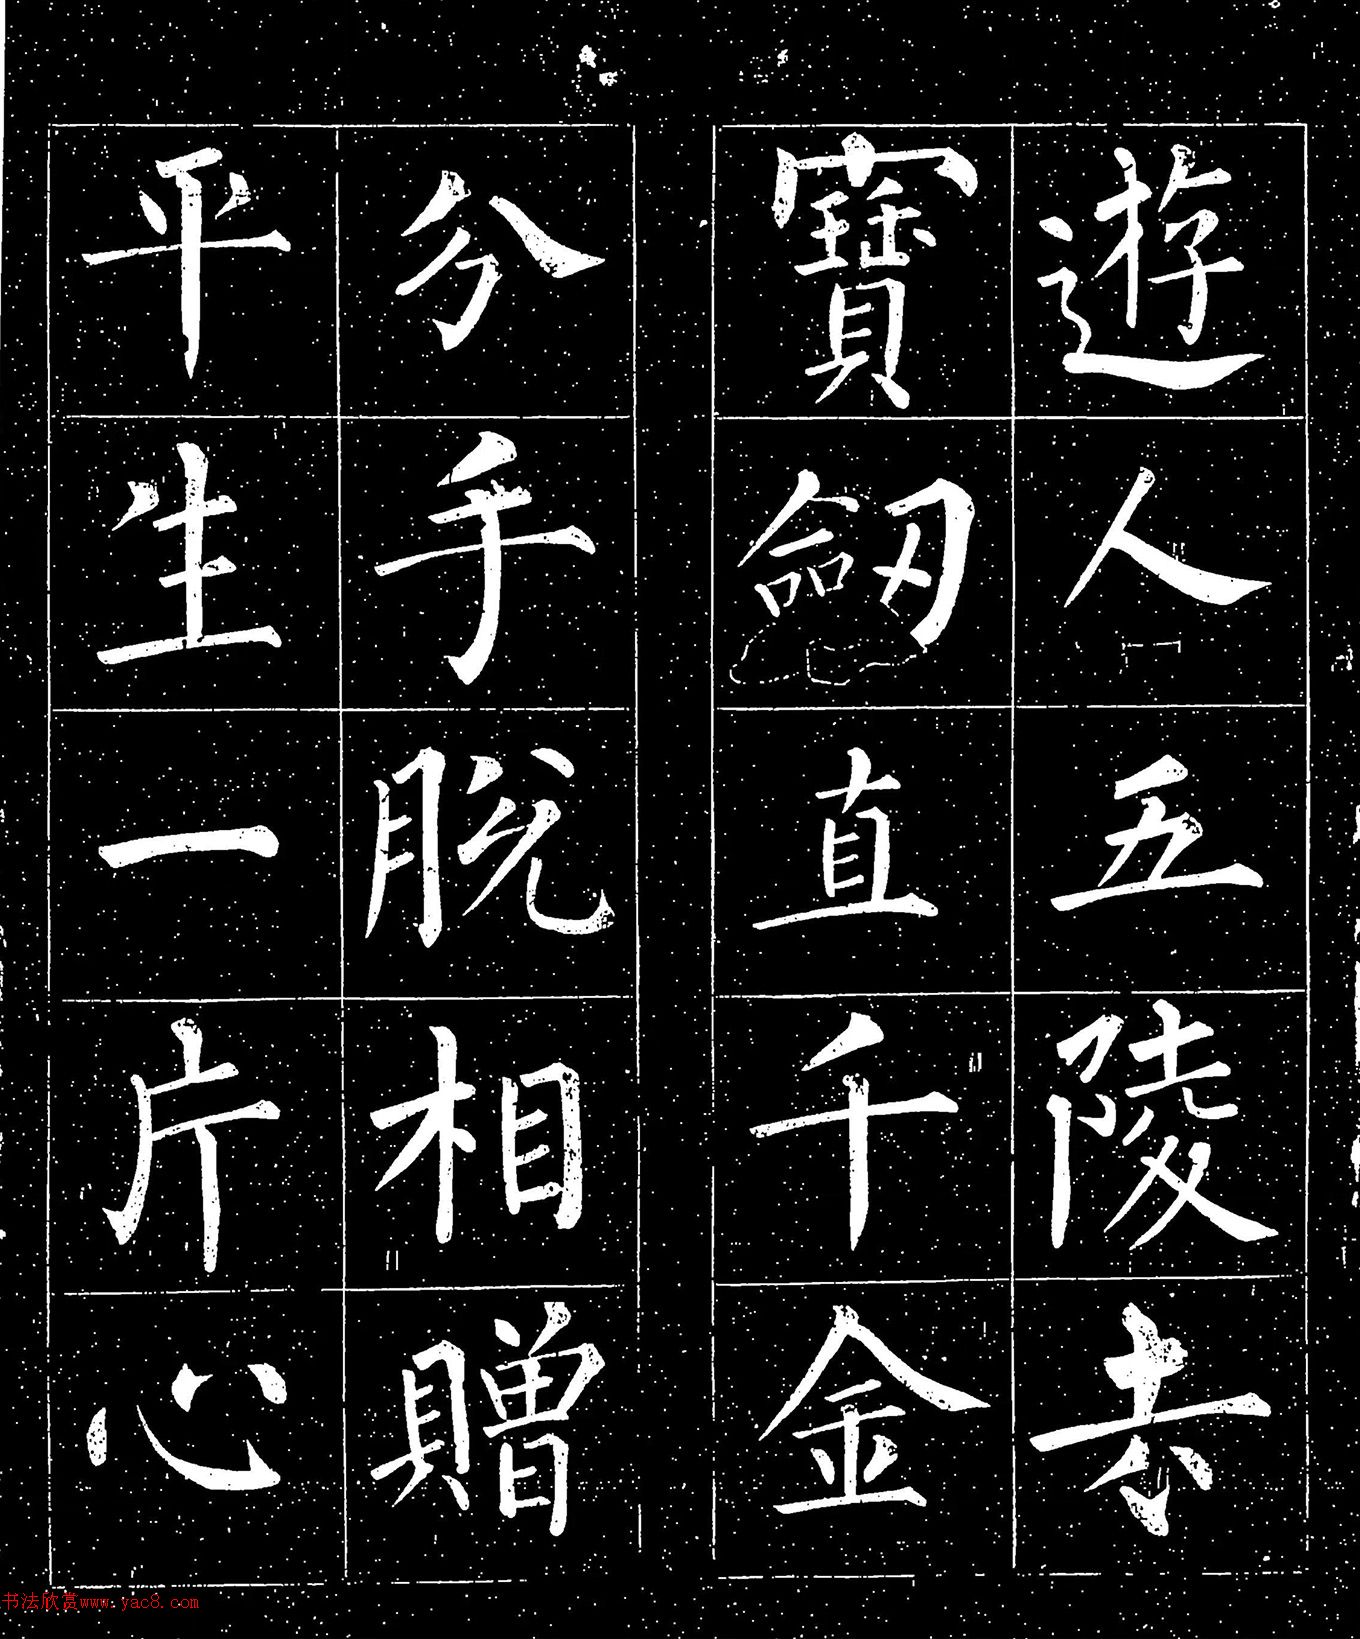 遊人五陵去
寶劒直千金
分手脫相贈
平生一片心
书法欣赏www.yac8.com